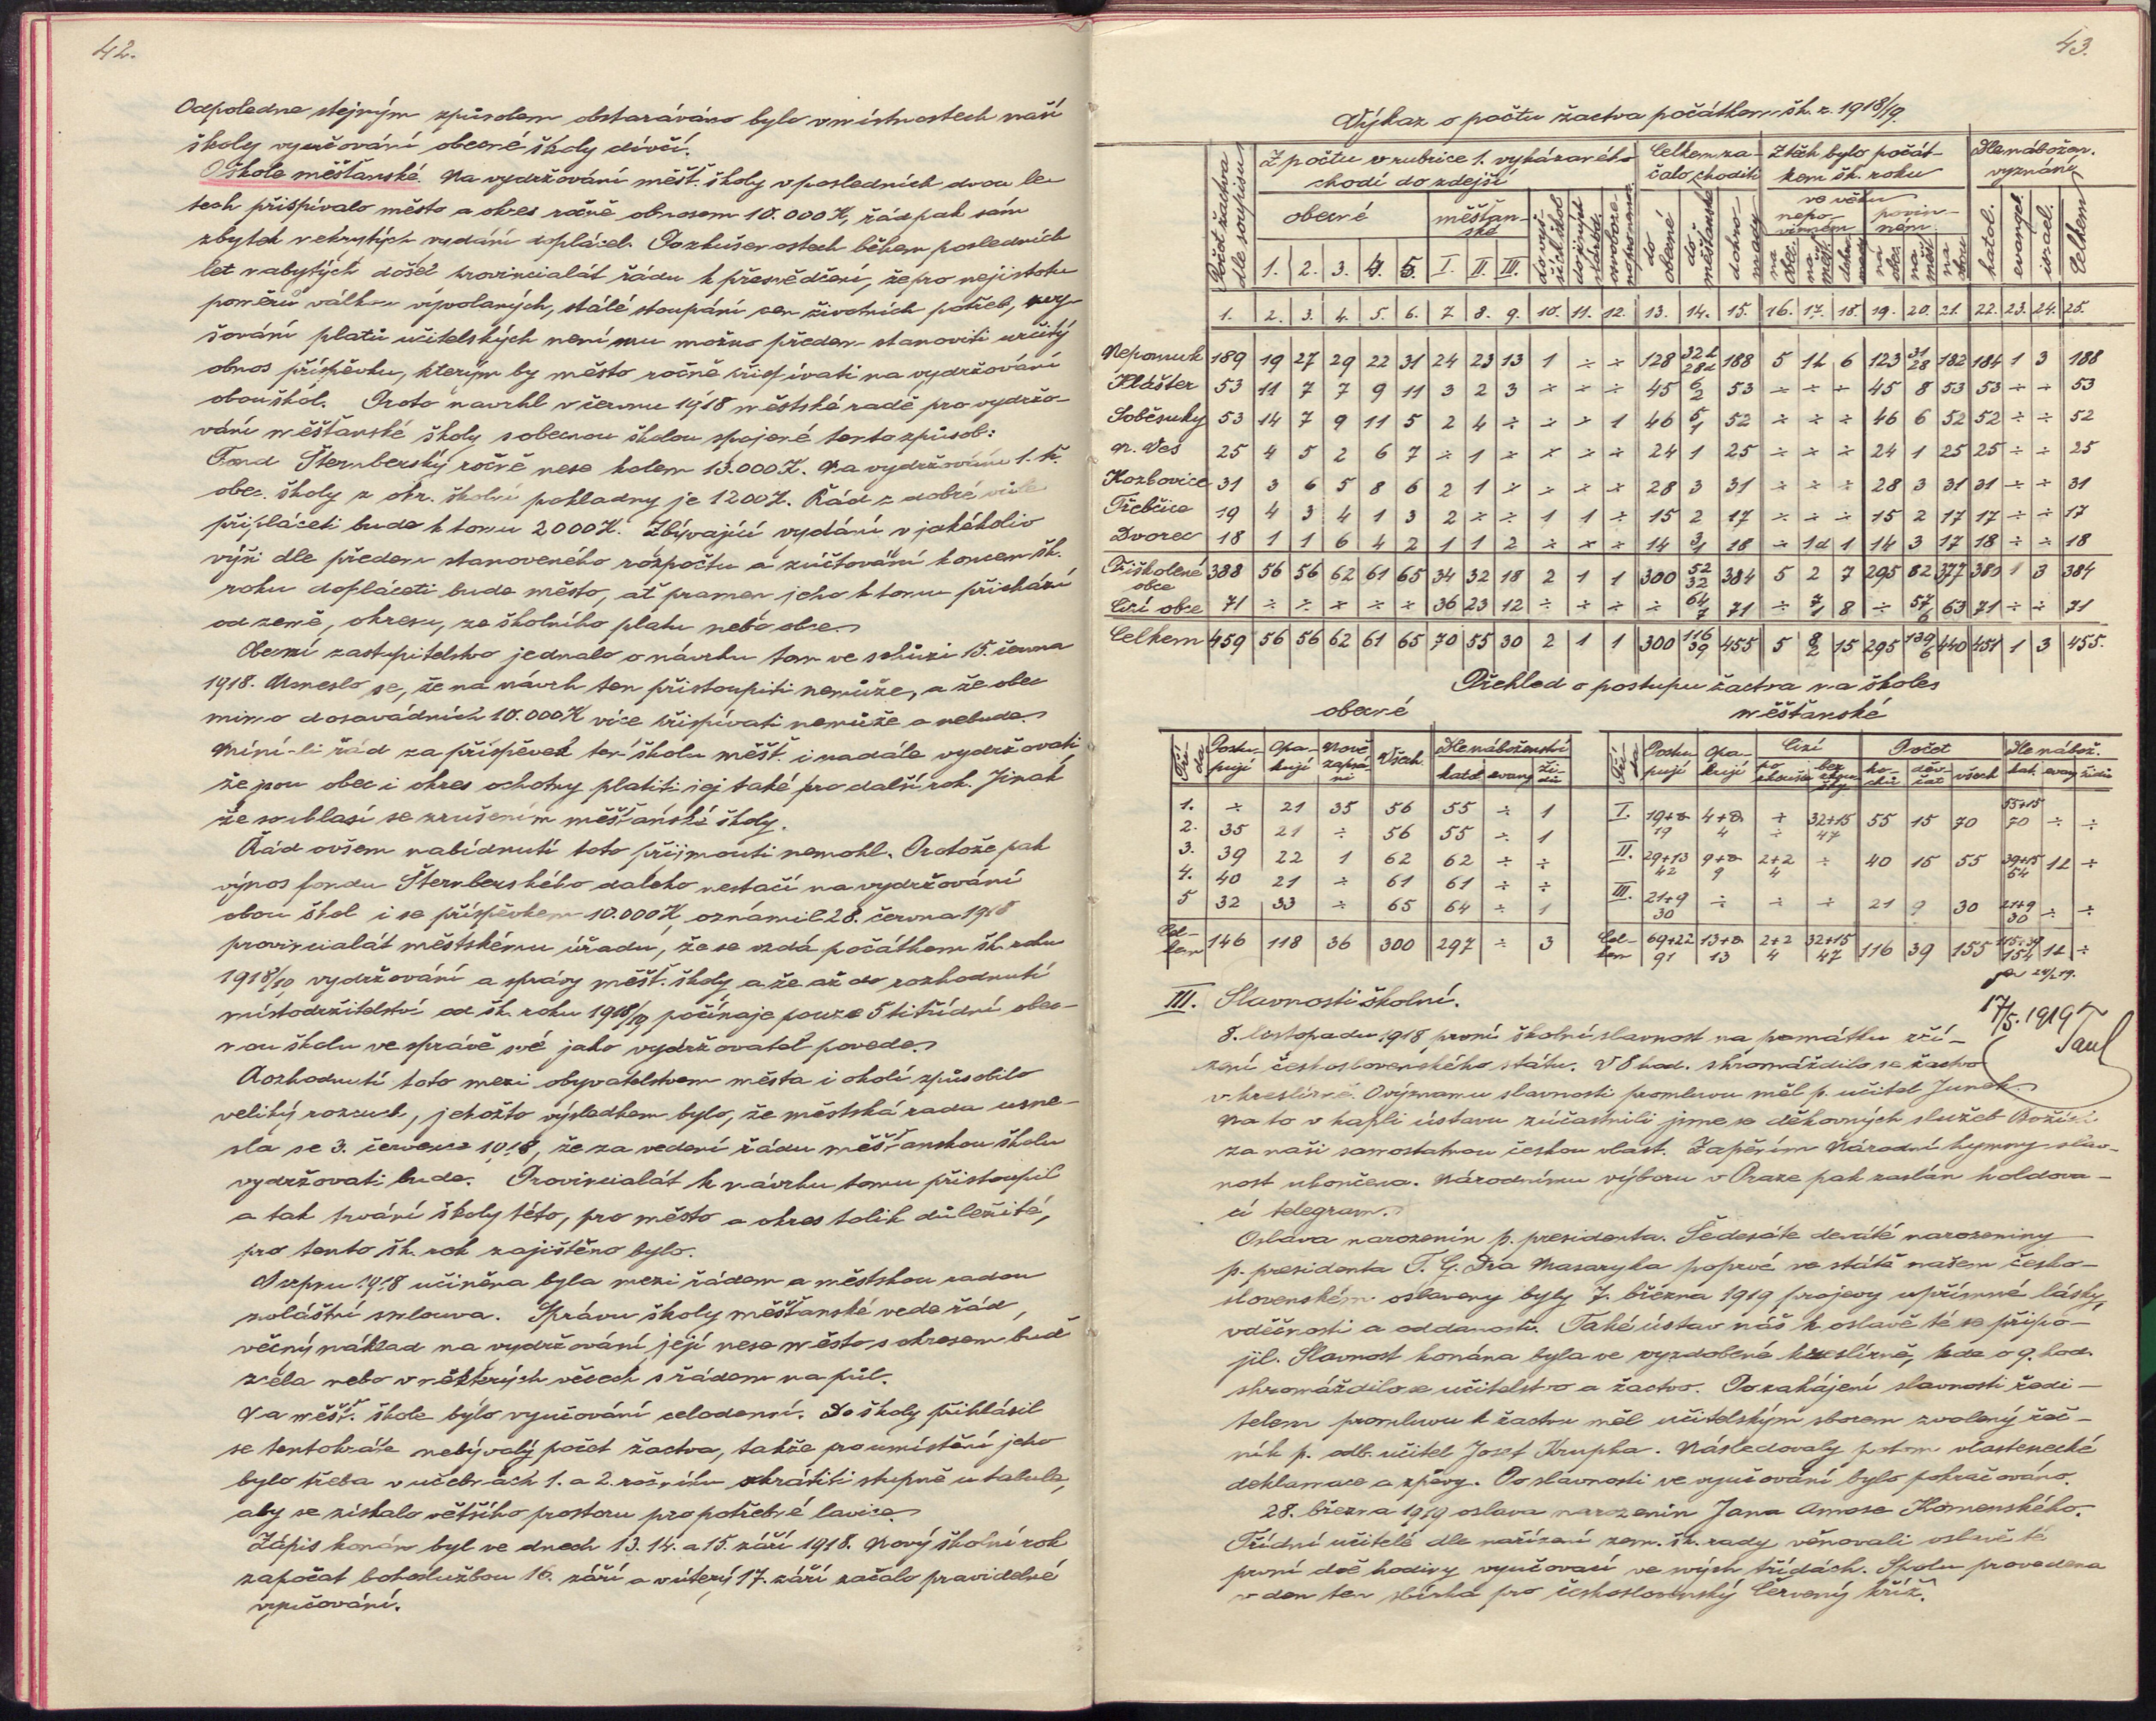 42.
Odpoledne stejným způsobem obstaráváno bylo v místnostech naší
školy vyučování obecné školy dívčí.
O škole měšťanské. Na vydržování měšť. školy v posledních dvou le-
tech přispívalo město a okres ročně obnosem 10.000 K, řád pak sám
zbytek nekrytých vydání doplácel. Po zkušenostech během posledních
let nabytých došel provincialát řádu k přesvědčení, že pro nejistotu
poměrů válkou vyvolaných, stálé stoupání cen životních potřeb, zvy-
šování platů učitelských není mu možno předem stanoviti určitý
obnos příspěvku, kterým by město ročně přispívati na vydržování
obou škol. Proto navrhl v červnu 1918 městské radě pro vydržo-
vání měšťanské školy s obecnou školou spojené tento způsob:
Fond Šternberský ročně nese kolem 13.000 K. Na vydržování 1. tř.
obec. školy z okr. školní pokladny je 1200 K. Řád z dobré vůle
připláceti bude k tomu 2000 K. Zbývající vydání v jakékoliv
výši dle předem stanoveného rozpočtu a zúčtování koncem šk.
roku dopláceti bude město, ať pramen jeho k tomu přichází
od země, okresu, ze školního platu nebo obce.
Obecní zastupitelstvo jednalo o návrhu tom ve schůzi 15. června
1918. Usneslo se, že na návrh ten přistoupiti nemůže, a že obec
mimo dosavádních 10.000 K více přispívati nemůže a nebude.
Míní-li řád za příspěvek ten školu měšť. i nadále vydržovati
že jsou obec i okres ochotny platiti jej také pro další rok. Jinak
že souhlasí se zrušením měšťanské školy.
Řád ovšem nabídnutí toto přijmouti nemohl. Protože pak
výnos fondu Šternberského daleko nestačí na vydržování
obou škol i se příspěvkem 10.000 K, oznámil 28. června 1918
provincialát městskému úřadu, že se vzdá počátkem šk. roku
1918/19 vydržování a správy měšť. školy a že až do rozhodnutí
místodržitelství od šk. roku 1918/19 počínaje pouze 5 titřídní obec-
nou školu ve správě své jako vydržovatel povede.
Rozhodnutí toto mezi obyvatelstvem města i okolí způsobilo
veliký rozruch, jehožto výsledkem bylo, že městská rada usne-
sla se 3. července 1918, že za vedení řádu měšťanskou školu
vydržovati bude. Provincialát k návrhu tomu přistoupil
a tak trvání školy této, pro město a okres tolik důležité,
pro tento šk. rok zajištěno bylo.
V srpnu 1918 učiněna byla mezi řádem a městskou radou
zvláštní smlouva. Správu školy měšťanské vede řád,
věčný náklad na vydržování její nese město s okresem buď
zcela nebo v některých věcech s řádem na půl.
Na měšť. škole bylo vyučování celodenní. Do školy přihlásil
se tentokráte nebývalý počet žactva, takže pro umístění jeho
bylo třeba v učebnách 1. a 2. ročníku zkrátiti stupně u tabule,
aby se získalo většího prostoru pro potřebné lavice.
Zápis konán byl ve dnech 13. 14. a 15. září 1918. Nový školní rok
započat bohoslužbou 16. září a v úterý 17. září začalo pravidelné
vyučování.
43.
Výkaz o počtu žactva počátkem šk. r. 1918/19.
Počet žactva dle soupisu | Z počtu v rubrice 1. vykázaného chodí do zdejší | Celkem za-čalo choditi | Z těch bylo počát-kem šk. roku | Dle nábožen. vyznání
obecné | měšťan-ské | do vyš-ších škol | do jiných | osvobozeno | do obecné | do měšťanské | dohro-mady | ve věku nepo-vinném | povin-ném | katol. | evangel. | israel. | Celkem
1. | 2. | 3. | 4. | 5. | I. | II. | III. | na obec. | na měšť. | dohromady | na obec. | na měšť.
1. | 2. | 3. | 4. | 5. | 6. | 7 | 8. | 9. | 10. | 11. | 12. | 13. | 14. | 15. | 16. | 17. | 18. | 19. | 20. | 21. | 22. | 23. | 24. | 25.
Nepomuk 189 | 19 | 27 | 29 | 22 | 31 | 24 | 23 | 13 | 1 | ÷ | ÷ | 128 | 32h 28d | 188 | 5 | 1h | 6 | 123 | 31 28 | 182 | 184 | 1 | 3 | 188
Klášter 53 | 11 | 7 | 7 | 9 | 11 | 3 | 2 | 3 | ÷ | ÷ | ÷ | 45 | 6 2 | 53 | ÷ | ÷ | ÷ | 45 | 8 | 53 | 53 | ÷ | ÷ | 53
Soběsuky 53 | 14 | 7 | 9 | 11 | 5 | 2 | 4 | ÷ | ÷ | ÷ | 1 | 46 | 5 1 | 52 | ÷ | ÷ | ÷ | 46 | 6 | 52 | 52 | ÷ | ÷ | 52
N. Ves 25 | 4 | 5 | 2 | 6 | 7 | ÷ | 1 | ÷ | ÷ | ÷ | ÷ | 24 | 1 | 25 | ÷ | ÷ | ÷ | 24 | 1 | 25 | 25 | ÷ | ÷ | 25
Kozlovice 31 | 3 | 6 | 5 | 8 | 6 | 2 | 1 | ÷ | ÷ | ÷ | ÷ | 28 | 3 | 31 | ÷ | ÷ | ÷ | 28 | 3 | 31 | 31 | ÷ | ÷ | 31
Třebčice 19 | 4 | 3 | 4 | 1 | 3 | 2 | ÷ | ÷ | 1 | 1 | ÷ | 15 | 2 | 17 | ÷ | ÷ | ÷ | 15 | 2 | 17 | 17 | ÷ | ÷ | 17
Dvorec 18 | 1 | 1 | 6 | 4 | 2 | 1 | 1 | 2 | ÷ | ÷ | ÷ | 14 | 3 1 | 18 | ÷ | 1d | 1 | 14 | 3 | 17 | 18 | ÷ | ÷ | 18
Přiškolené obce 388 | 56 | 56 | 62 | 61 | 65 | 34 | 32 | 18 | 2 | 1 | 1 | 300 | 52 32 | 384 | 5 | 2 | 7 | 295 | 82 | 377 | 380 | 1 | 3 | 384
Cizí obce 71 | ÷ | ÷ | ÷ | ÷ | ÷ | 36 | 23 | 12 | ÷ | ÷ | ÷ | ÷ | 64 7 | 71 | ÷ | 7 1 | 8 | ÷ | 57 6 | 63 | 71 | ÷ | ÷ | 71
Celkem 459 | 56 | 56 | 62 | 61 | 65 | 70 | 55 | 30 | 2 | 1 | 1 | 300 | 116 39 | 455 | 5 | 8 2 | 15 | 295 | 139 6 | 440 | 451 | 1 | 3 | 455.
Přehled o postupu žactva na škole
obecné | měšťanské
Tří-da | Postu-pují | Opa-kují | Nově zapsá-ni | Všech | Dle náboženství katol. evang. ži-dů | Tří-da | Postu-pují | Opa-kují | Cizí po zkoušce bez zkouš-ky | Počet ho-chů děv-čat všech | Dle nábož. kat. evang. židů
1. | ÷ | 21 | 35 | 56 | 55 | ÷ | 1
2. | 35 | 21 | ÷ | 56 | 55 | ÷ | 1
3. | 39 | 22 | 1 | 62 | 62 | ÷ | ÷
4. | 40 | 21 | ÷ | 61 | 61 | ÷ | ÷
5 | 32 | 33 | ÷ | 65 | 64 | ÷ | 1
Cel-kem | 146 | 118 | 36 | 300 | 297 | ÷ | 3
I. | 19+0 19 | 4+0 4 | ÷ ÷ | 32+15 47 | 55 | 15 | 70 | 55+15 70 | ÷ | ÷
II. | 29+13 42 | 9+0 9 | 2+2 4 | ÷ | 40 | 15 | 55 | 39+15 54 | 1h | ÷
III. | 21+9 30 | ÷ | ÷ | ÷ | 21 | 9 | 30 | 21+9 30 | ÷ | ÷
Cel-kem | 69+22 91 | 13+0 13 | 2+2 4 | 32+15 47 | 116 | 39 | 155 | 115+39 154 | 1h | ÷
17/5. 1919
III. Slavnosti školní.
8. listopadu 1918 první školní slavnost na památku zří-
zení československého státu. V 8 hod. shromáždilo se žactvo
v kreslírně. O významu slavnosti promluvu měl p. učitel Junek.
Na to v kapli ústavu zúčastnili jsme se děkovných služeb Božích
za naši samostatnou českou vlast. Zapěním Národní hymny slav-
nost ukončena. Národnímu výboru v Praze pak zaslán holdova-
cí telegram.
Oslava narozenin p. presidenta. Šedesáté deváté narozeniny
p. presidenta T. G. Dra Masaryka poprvé ve státě našem česko-
slovenském oslaveny byly 7. března 1919 projevy upřímné lásky,
vděčnosti a oddanosti. Také ústav náš k oslavě té se připo-
jil. Slavnost konána byla ve vyzdobené kreslírně, kde o 9. hod.
shromáždilo se učitelstvo a žactvo. Po zahájení slavnosti ředi-
telem promluvu k žactvu měl učitelským sborem zvolený řeč-
ník p. odb. učitel Josef Krupka. Následovaly potom vlastenecké
deklamace a zpěvy. Po slavnosti ve vyučování bylo pokračováno.
28. března 1919 oslava narozenin Jana Amose Komenského.
Třídní učitelé dle nařízení zem. šk. rady věnovali oslavě té
první dvě hodiny vyučovací ve svých třídách. Spolu provedena
v den ten sbírka pro československý Červený kříž.